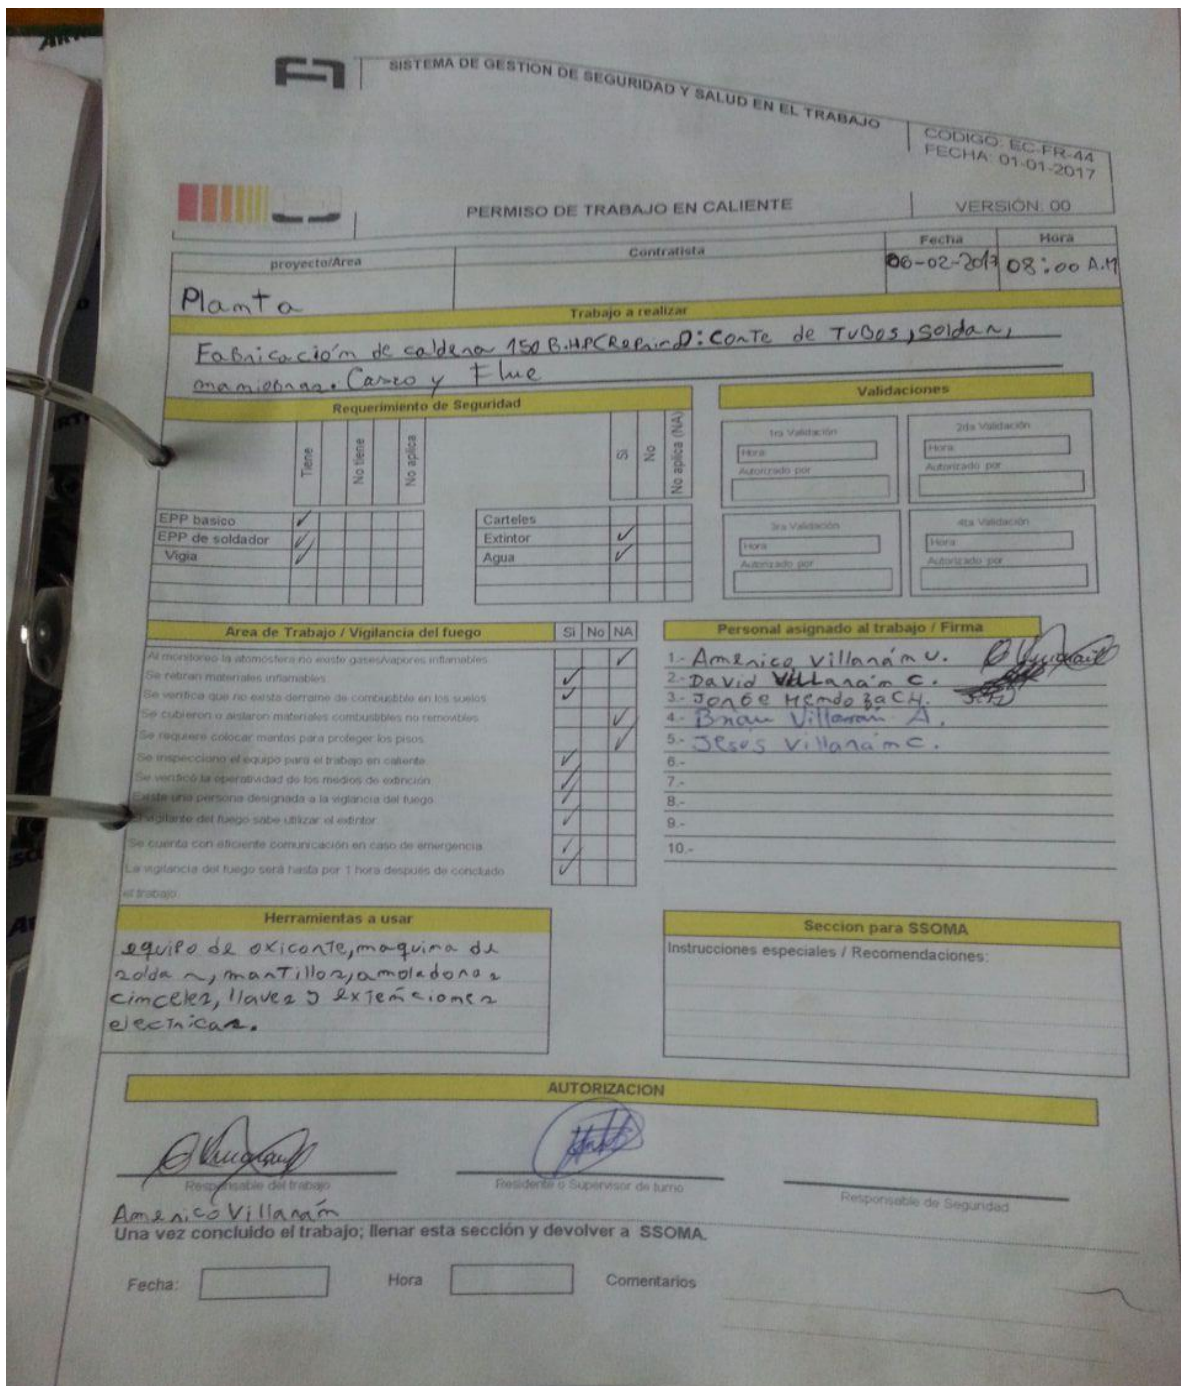 SISTEMA DE GESTION DE SEGURIDAD Y SALUD EN EL TRABAJO
CODIGO: EC-FR-44
FECHA: 01-01-2017
PERMISO DE TRABAJO EN CALIENTE
VERSIÓN: 00
proyecto/Area
Contratista
Fecha
Hora
Planta
06-02-2017
08:00 A.M
Trabajo a realizar
Fabricación de caldera 150 B.HP
: Corte de Tubos, soldar,
maniobras. Casco y Flue
Requerimiento de Seguridad
Tiene
No tiene
No aplica
Si
No
No aplica (NA)
EPP basico
EPP de soldador
Vigia
Carteles
Extintor
Agua
Validaciones
1ra Validación
Hora
Autorizado por
2da Validación
Hora
Autorizado por
3ra Validación
Hora
Autorizado por
4ta Validación
Hora
Autorizado por
Area de Trabajo / Vigilancia del fuego
Si No NA
Al monitoreo la atomosfera no existe gases/vapores inflamables
Se retiran materiales inflamables
Se verifica que no exista derrame de combustible en los suelos
Se cubrieron o aislaron materiales combustibles no removibles
Se requiere colocar mantas para proteger los pisos
Se inspecciono el equipo para el trabajo en caliente
Se verificó la operatividad de los medios de extinción
Existe una persona designada a la vigilancia del fuego
El vigilante del fuego sabe utilizar el extintor
Se cuenta con eficiente comunicación en caso de emergencia
La vigilancia del fuego será hasta por 1 hora después de concluido
el trabajo
Personal asignado al trabajo / Firma
1.- Américo Villarán V.
2.- David Villarán C.
3.- Jorge Mendoza CH.
4.- Brian Villarán A.
5.- Jesús Villarán C.
6.-
7.-
8.-
9.-
10.-
Herramientas a usar
equipo de oxicorte, maquina de
soldar, martillos, amoladoras
cinceles, llaves y extenciones
electricas.
Seccion para SSOMA
Instrucciones especiales / Recomendaciones:
AUTORIZACION
Responsable del trabajo
Américo Villarán
Residente o Supervisor de turno
Responsable de Seguridad
Una vez concluido el trabajo; llenar esta sección y devolver a SSOMA.
Fecha:
Hora
Comentarios